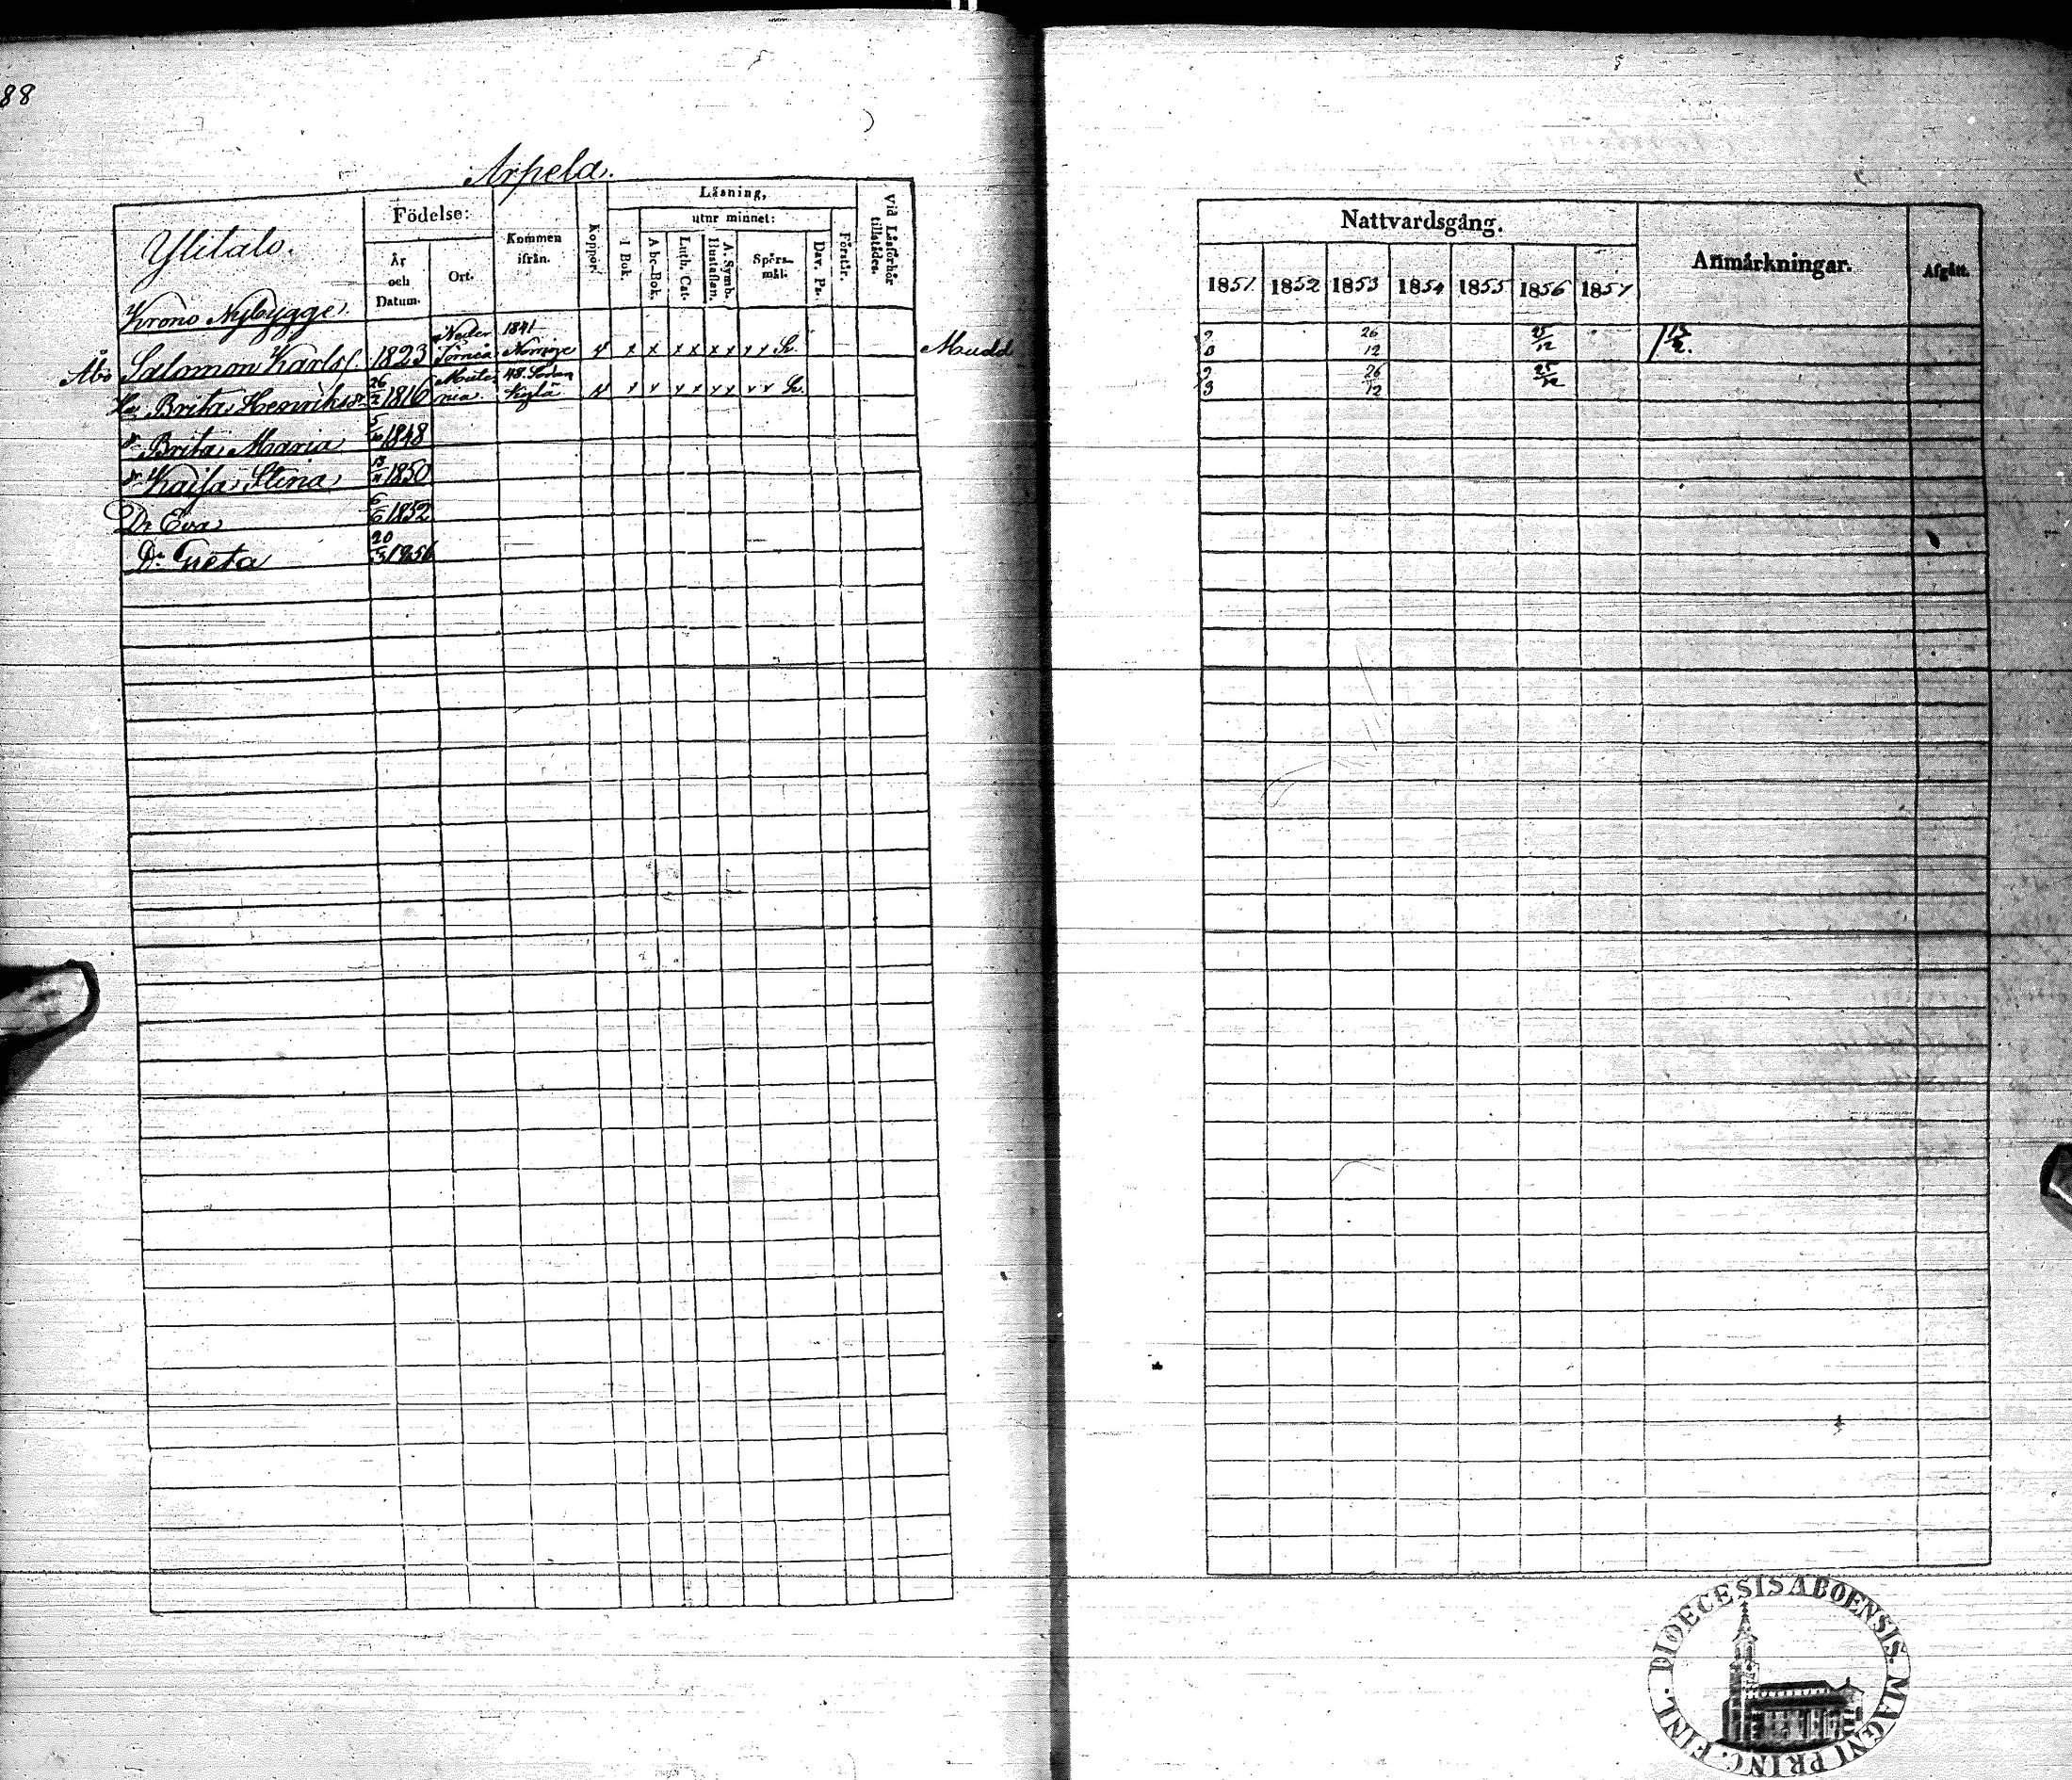 88
Arpela.
Ylitalo.
Krono Nybygge.
Födelse:
År och Datum.
Ort.
Kommen ifrån.
Koppor.
Läsning,
I Bok.
utur minnet:
A b c-Bok.
Luth. Cat.
A. Symb. Hustaflan.
Spörs-mål.
Dav. Ps.
Förstår.
Vid Läsförhör tillstädes.
Nattvardsgång.
1851 1852 1853 1854 1855 1856 1857
Anmärkningar.
Afgått.
Åbo Salomon Karlss. 1823 Neder Torneå 1841 Norrige x x x x x x x x Mudd 26/12 25/12
Hu Brita Henriksdr 26/2 1816 48. Sodan Kylä x x x x x x x x 26/12 25/12
dr Brita Maria 1848
dr Kaisa Stina 1850
Dr Eva 6/6 1852
Dr Greta 20/3 1856
DIOECESIS ABOENSIS. MAGNI PRINC. FINL.